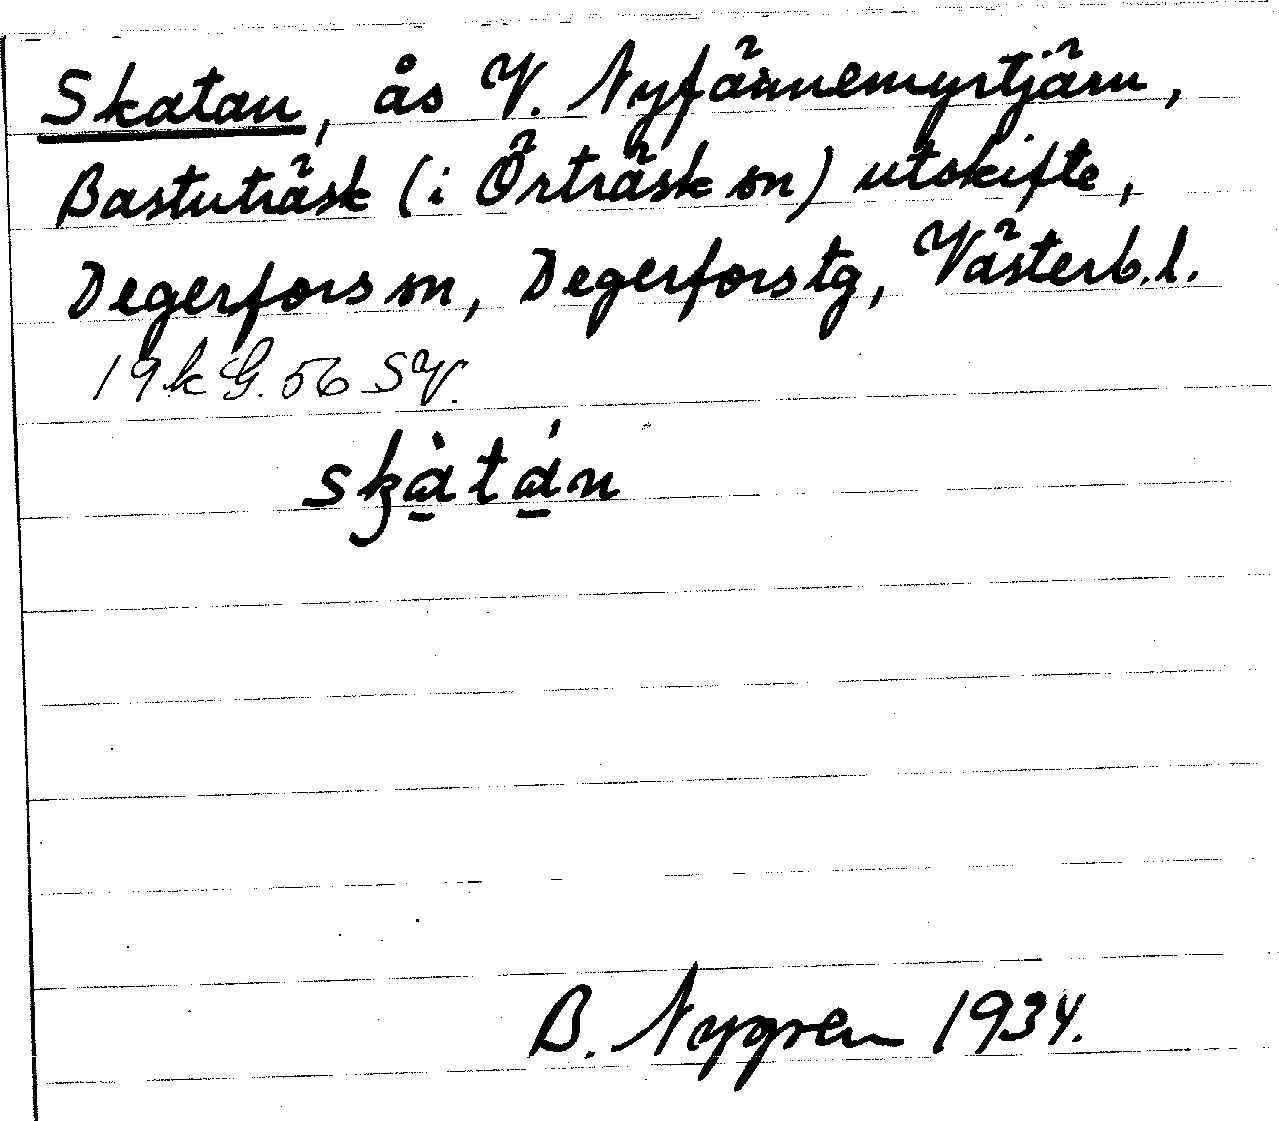 Skatan, ås V. Nyfännemyrtjärn,
Bastuträsk (i Örträsk sn) utskifte,
Degerfors sn, Degerfors tg, Västerb. l.
19 k G. 56 SV.
skàtán
B. Nygren 1934.